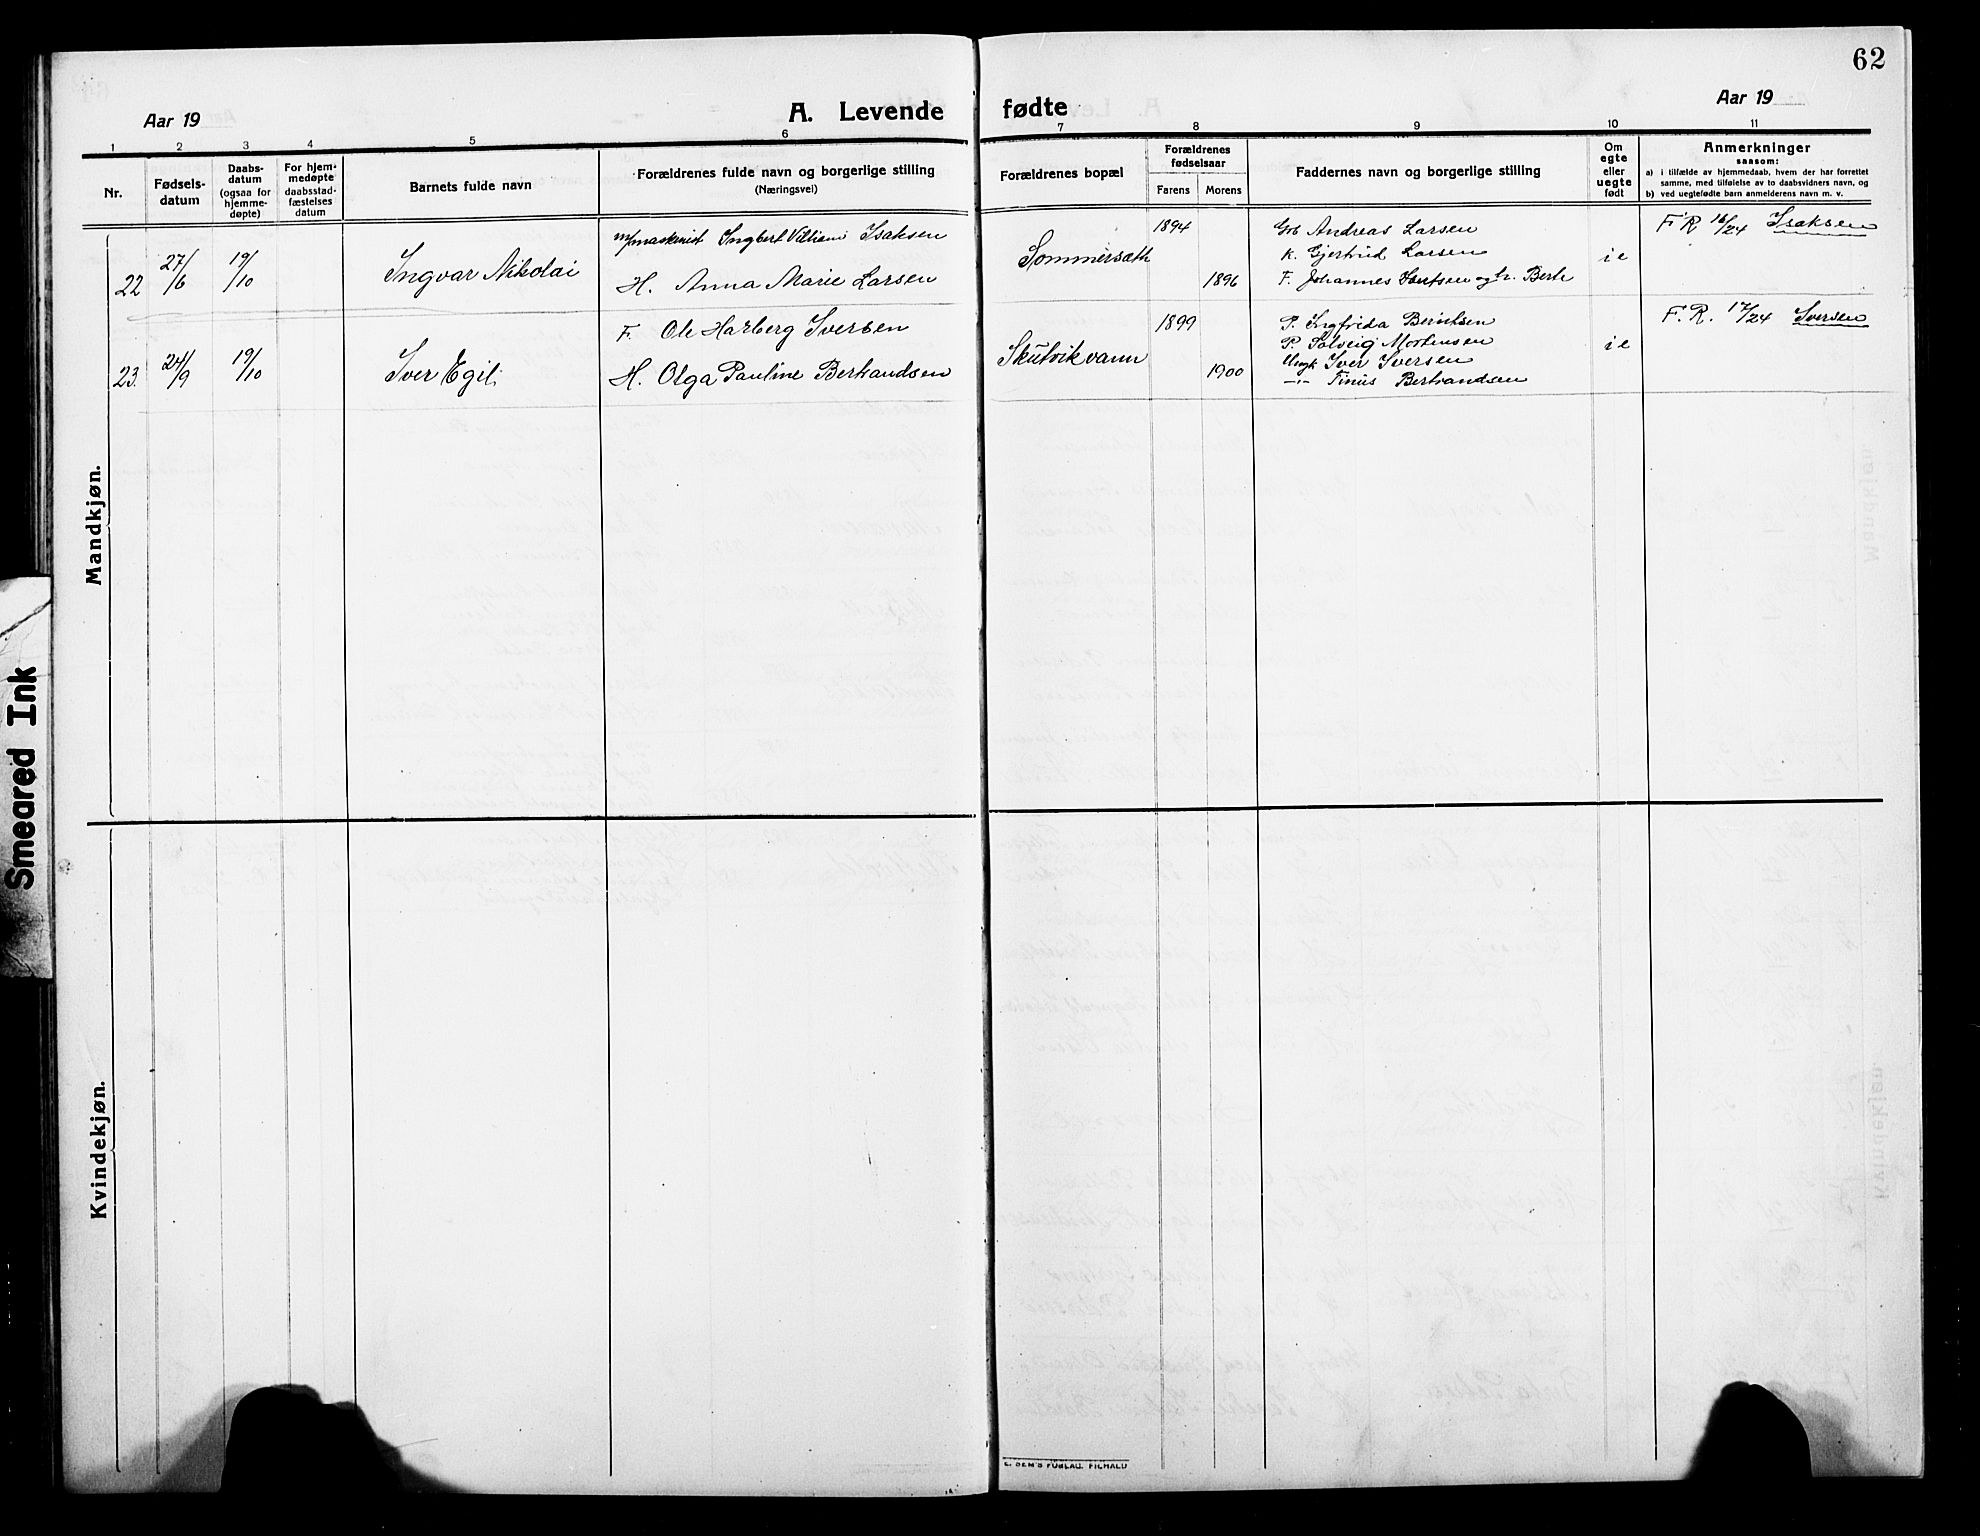 62
Aar 19
A. Levende fødte
Aar 19
1 2 3 4 5 6 7 8 9 10 11
Nr.
Fødsels-
datum
Daabs-
datum
(ogsaa for
hjemme-
døpte)
For hjem-
medøpte
daabsstad-
fæstelses
datum
Barnets fulde navn
Forældrenes fulde navn og borgerlige stilling
(Næringsvei)
Forældrenes bopæl
Forældrenes
fødselsaar
Farens Morens
Faddernes navn og borgerlige stilling
Om
egte
eller
uegte
født
Anmerkninger
saasom:
a) i tilfælde av hjemmedaab, hvem der har forrettet
samme, med tilføielse av to daabsvidners navn, og
b) ved uegtefødte barn anmelderens navn m. v.
Mandkjøn.
22 27/6 19/10 Ingvar Nikolai
m/maskinist Ingbert Villiam Isaksen
H. Anna Marie Larsen
Sommersæth
1894
1896
Grb Andreas Larsen
K. Gjertrud Larsen
F. Johannes og h. Berte
i e
F. R. 16/24 Isaksen
23. 24/9 19/10 Iver Egil.
F. Ole Harberg Iversen
H. Olga Pauline Bertrandsen
Skutvikvann
1899
1900
P. Ingfrida Berntsen
P. Solveig Mortensen
Ungk Iver Iversen
-"- Tinus Bertrandsen
i e
F. R. 17/24 Iversen
Kvindekjøn.
Smeared Ink